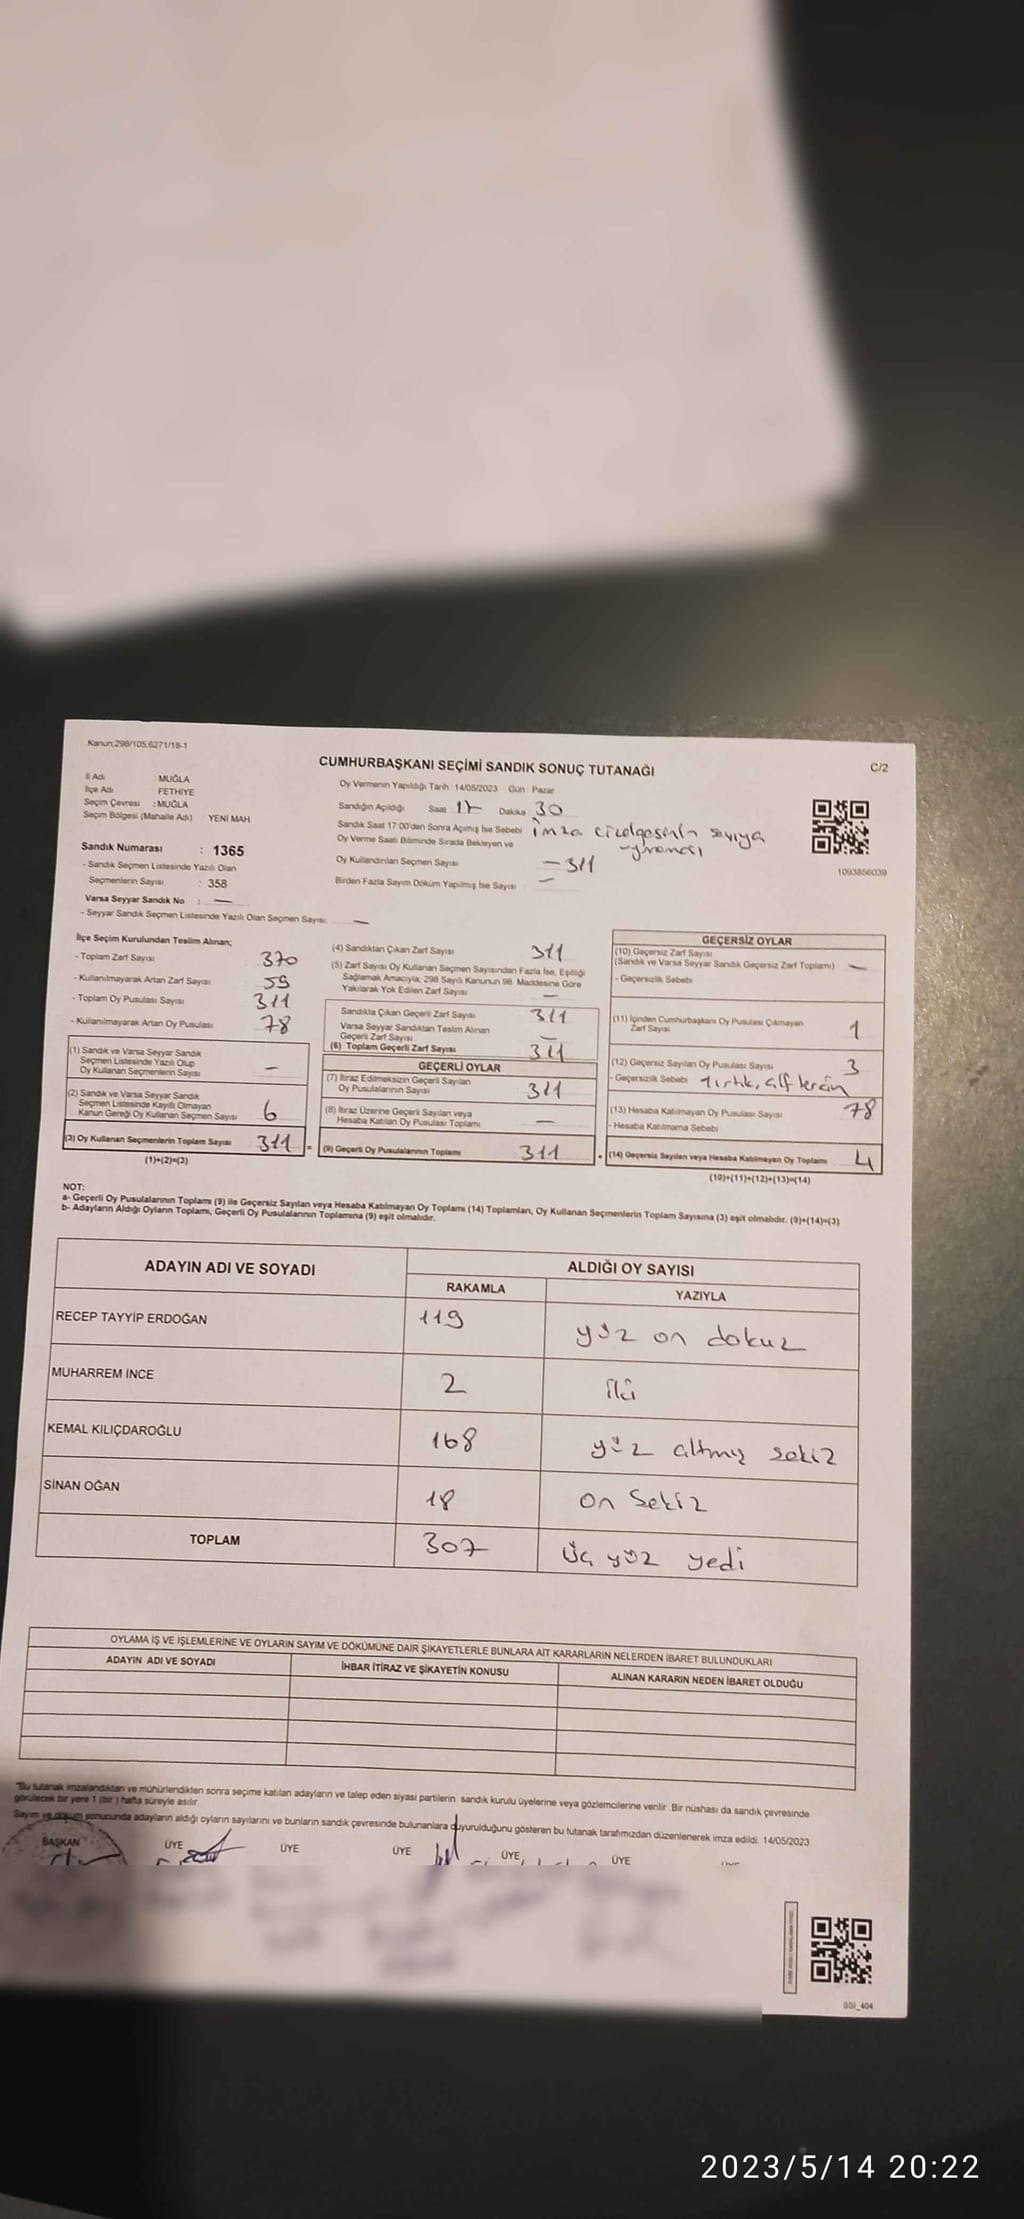 Kanun;298/105;6271/18-1
CUMHURBAŞKANI SEÇİMİ SANDIK SONUÇ TUTANAĞI
C/2
İl Adı MUĞLA
İlçe Adı FETHİYE
Seçim Çevresi :MUĞLA
Seçim Bölgesi (Mahalle Adı) YENİ MAH.
Sandık Numarası : 1365
- Sandık Seçmen Listesinde Yazılı Olan
Seçmenlerin Sayısı : 358
Varsa Seyyar Sandık No : —
- Seyyar Sandık Seçmen Listesinde Yazılı Olan Seçmen Sayısı: —
Oy Vermenin Yapıldığı Tarih 14/05/2023 Gün : Pazar
Sandığın Açıldığı Saat 17 Dakika 30
Sandık Saat 17:00'den Sonra Açmış İse Sebebi imza çizelgesinin sayıya
Oy Verme Saati Bitiminde Sırada Bekleyen ve
Oy Kullandırılan Seçmen Sayısı — 311
Birden Fazla Sayım Döküm Yapılmış İse Sayısı : —
1093856039
İlçe Seçim Kurulundan Teslim Alınan;
- Toplam Zarf Sayısı 370
- Kullanılmayarak Artan Zarf Sayısı 59
- Toplam Oy Pusulası Sayısı 311
- Kullanılmayarak Artan Oy Pusulası 78
(1) Sandık ve Varsa Seyyar Sandık
Seçmen Listesinde Yazılı Olup
Oy Kullanan Seçmenlerin Sayısı —
(2) Sandık ve Varsa Seyyar Sandık
Seçmen Listesinde Kayıtlı Olmayan
Kanun Gereği Oy Kullanan Seçmen Sayısı 6
(3) Oy Kullanan Seçmenlerin Toplam Sayısı 311 =
(1)+(2)=(3)
(4) Sandıktan Çıkan Zarf Sayısı 311
(5) Zarf Sayısı Oy Kullanan Seçmen Sayısından Fazla İse, Eşitliği
Sağlamak Amacıyla, 298 Sayılı Kanunun 98. Maddesine Göre
Yakılarak Yok Edilen Zarf Sayısı —
Sandıkta Çıkan Geçerli Zarf Sayısı 311
Varsa Seyyar Sandıktan Teslim Alınan
Geçerli Zarf Sayısı —
(6) Toplam Geçerli Zarf Sayısı 311
GEÇERLİ OYLAR
(7) İtiraz Edilmeksizin Geçerli Sayılan
Oy Pusulalarının Sayısı 311
(8) İtiraz Üzerine Geçerli Sayılan veya
Hesaba Katılan Oy Pusulası Toplamı —
(9) Geçerli Oy Pusulalarının Toplamı 311 +
GEÇERSİZ OYLAR
(10) Geçersiz Zarf Sayısı
(Sandık ve Varsa Seyyar Sandık Geçersiz Zarf Toplamı) —
- Geçersizlik Sebebi
(11) İçinden Cumhurbaşkanı Oy Pusulası Çıkmayan
Zarf Sayısı 1
(12) Geçersiz Sayılan Oy Pusulası Sayısı 3
- Geçersizlik Sebebi
(13) Hesaba Katılmayan Oy Pusulası Sayısı 78
- Hesaba Katılmama Sebebi
(14) Geçersiz Sayılan veya Hesaba Katılmayan Oy Toplamı 4
(10)+(11)+(12)+(13)=(14)
NOT:
a- Geçerli Oy Pusulalarının Toplamı (9) ile Geçersiz Sayılan veya Hesaba Katılmayan Oy Toplamı (14) Toplamları, Oy Kullanan Seçmenlerin Toplam Sayısına (3) eşit olmalıdır. (9)+(14)=(3)
b- Adayların Aldığı Oyların Toplamı, Geçerli Oy Pusulalarının Toplamına (9) eşit olmalıdır.
ADAYIN ADI VE SOYADI
ALDIĞI OY SAYISI
RAKAMLA YAZIYLA
RECEP TAYYİP ERDOĞAN 119 yüz on dokuz
MUHARREM İNCE 2 iki
KEMAL KILIÇDAROĞLU 168 yüz altmış sekiz
SİNAN OĞAN 18 on sekiz
TOPLAM 307 üç yüz yedi
OYLAMA İŞ VE İŞLEMLERİNE VE OYLARIN SAYIM VE DÖKÜMÜNE DAİR ŞİKAYETLERLE BUNLARA AİT KARARLARIN NELERDEN İBARET BULUNDUKLARI
ADAYIN ADI VE SOYADI İHBAR İTİRAZ VE ŞİKAYETİN KONUSU ALINAN KARARIN NEDEN İBARET OLDUĞU
"Bu tutanak imzalandıktan ve mühürlendikten sonra seçime katılan adayların ve talep eden siyasi partilerin sandık kurulu üyelerine veya gözlemcilerine verilir. Bir nüshası da sandık çevresinde
görülecek bir yere 1 (bir) hafta süreyle asılır.
Sayım ve döküm sonucunda adayların aldığı oyların sayılarını ve bunların sandık çevresinde bulunanlara duyurulduğunu gösteren bu tutanak tarafımızdan düzenlenerek imza edildi. 14/05/2023
BAŞKAN ÜYE ÜYE ÜYE ÜYE ÜYE
SSI_404
2023/5/14 20:22